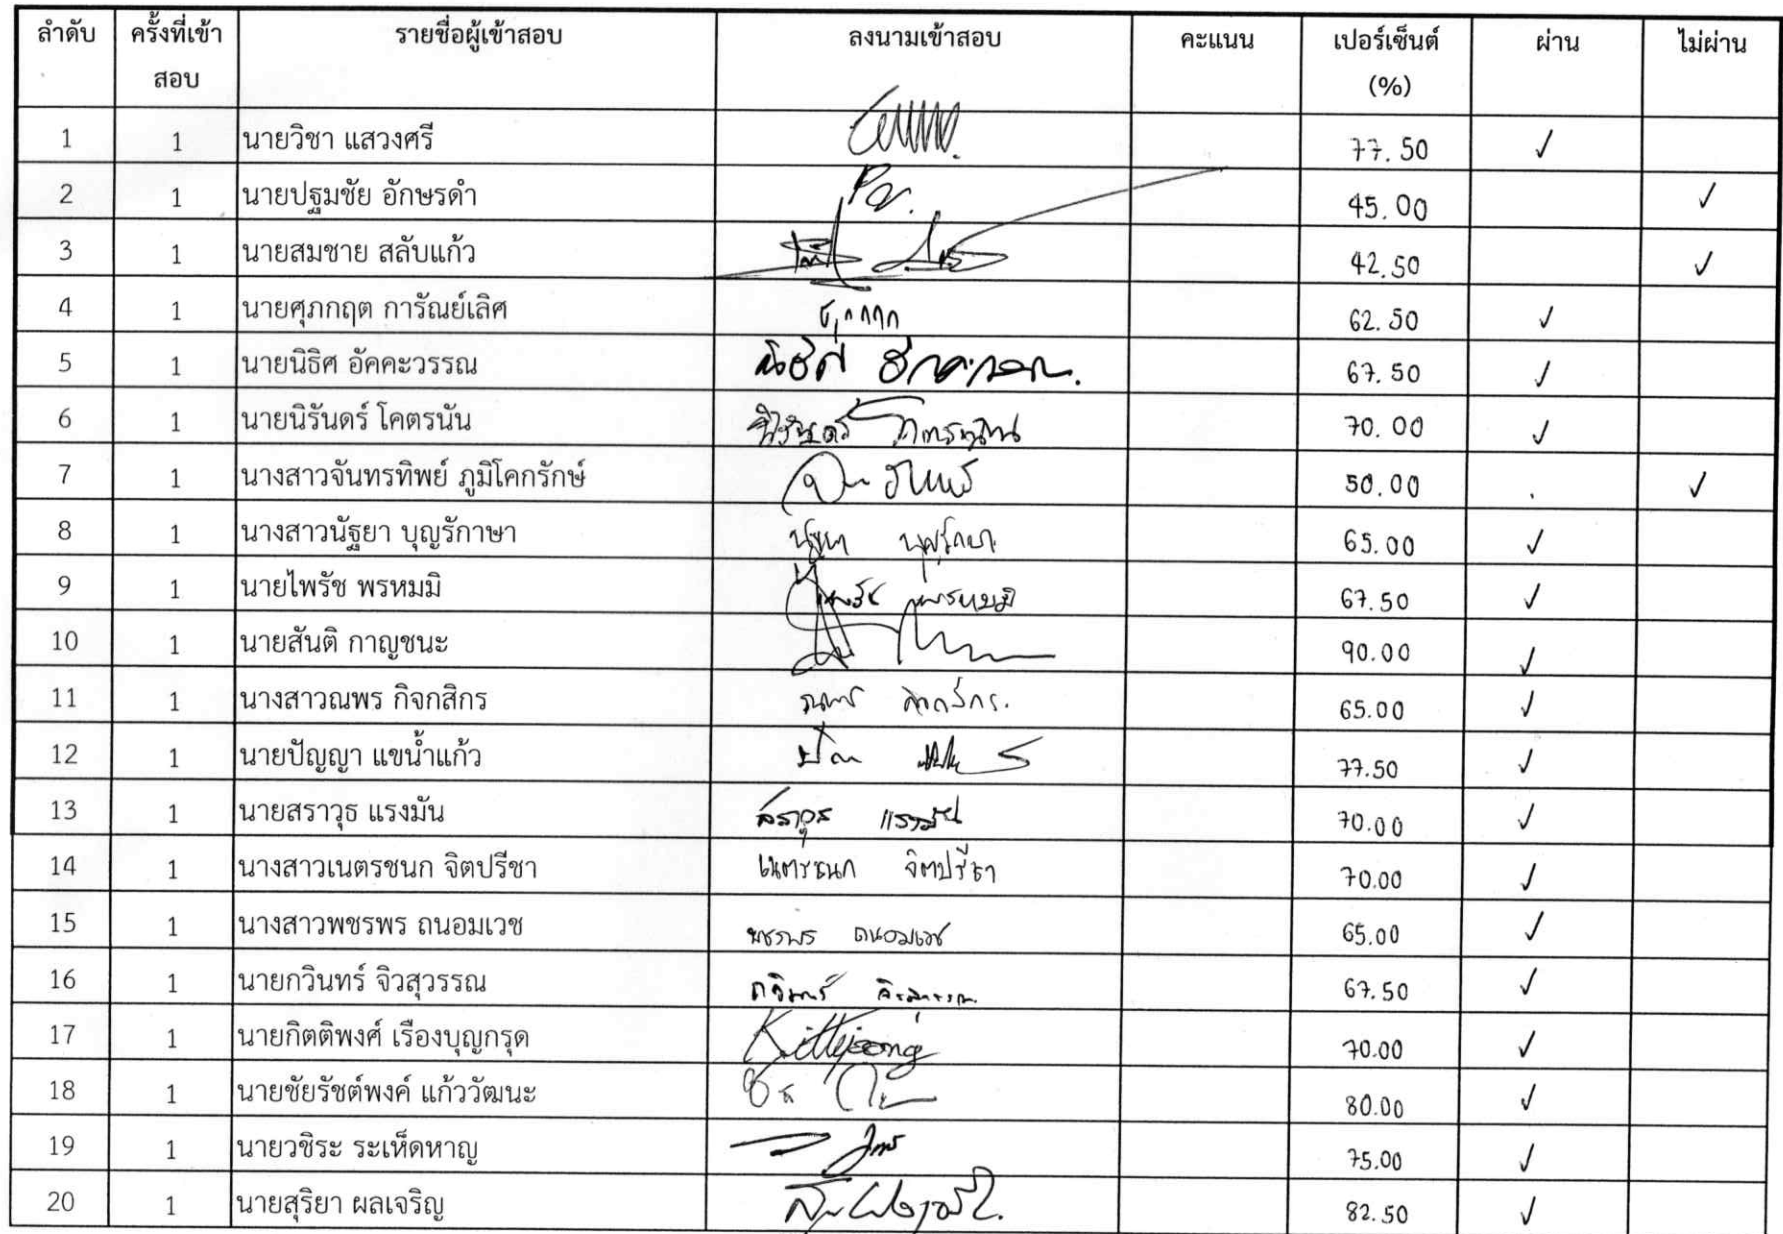 ลำดับ ครั้งที่เข้า รายชื่อผู้เข้าสอบ ลงนามเข้าสอบ คะแนน เปอร์เซ็นต์ ผ่าน ไม่ผ่าน
สอบ (%)
1 1 นายวิชา แสวงศรี 77.50 ✓
2 1 นายปฐมชัย อักษรดำ 45.00 ✓
3 1 นายสมชาย สลับแก้ว 42.50 ✓
4 1 นายศุภกฤต การัณย์เลิศ 62.50 ✓
5 1 นายนิธิศ อัคคะวรรณ 67.50 ✓
6 1 นายนิรันดร์ โคตรนัน นิรันดร์ 70.00 ✓
7 1 นางสาวจันทรทิพย์ ภูมิโคกรักษ์ 50.00 ✓
8 1 นางสาวนัฐยา บุญรักาษา 65.00 ✓
9 1 นายไพรัช พรหมมิ ไพรัช พรหมมิ 67.50 ✓
10 1 นายสันติ กาญชนะ 90.00 ✓
11 1 นางสาวณพร กิจกสิกร ณพร กิจกสิกร 65.00 ✓
12 1 นายปัญญา แขน้ำแก้ว 77.50 ✓
13 1 นายสราวุธ แรงมัน สราวุธ แรงมัน 70.00 ✓
14 1 นางสาวเนตรชนก จิตปรีชา เนตรชนก จิตปรีชา 70.00 ✓
15 1 นางสาวพชรพร ถนอมเวช พชรพร ถนอมเวช 65.00 ✓
16 1 นายกวินทร์ จิวสุวรรณ กวินทร์ จิวสุวรรณ 67.50 ✓
17 1 นายกิตติพงศ์ เรืองบุญกรุด Kittipong 70.00 ✓
18 1 นายชัยรัชต์พงค์ แก้ววัฒนะ 80.00 ✓
19 1 นายวชิระ ระเห็ดหาญ 75.00 ✓
20 1 นายสุริยา ผลเจริญ 82.50 ✓